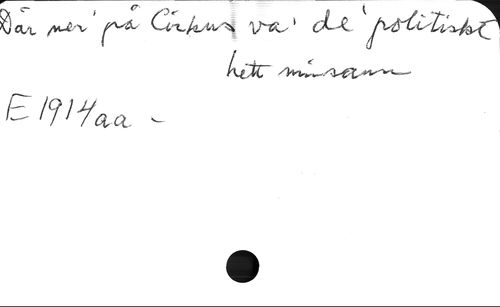 Där ner' på Cirkus va' de' politiskt
hett minsann
E 1914 aa -